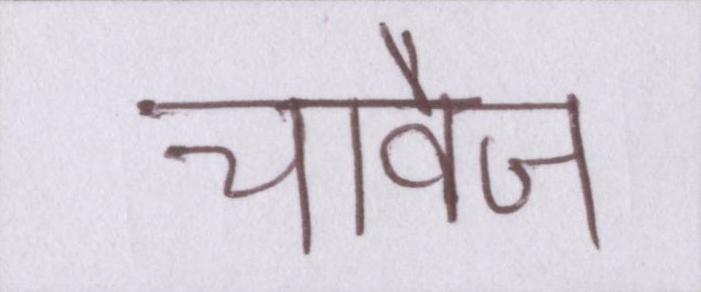 चावैज